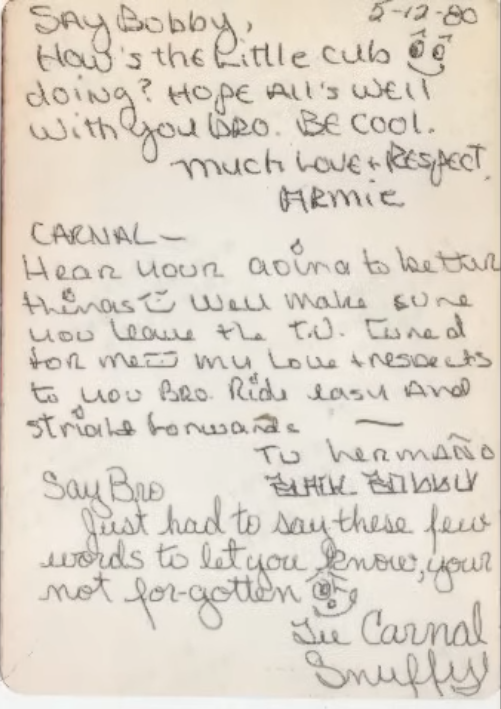 5-12-80
SAY BOBBY,
HOW'S the Little cub
doing? HOPE ALL'S WELL
With you BRO. BE COOL.
much Love + RESPECT.
ARMIE
CARNAL —
Hear your going to better
things Well make sure
you leave the T.V. tuned
for me my Love + respects
to you Bro. Ride easy And
striaht forwards —
TU hermaÑo
Say Bro
Just had to say these few
words to let you know, your
not for-gotten
Tu Carnal
Snuffy